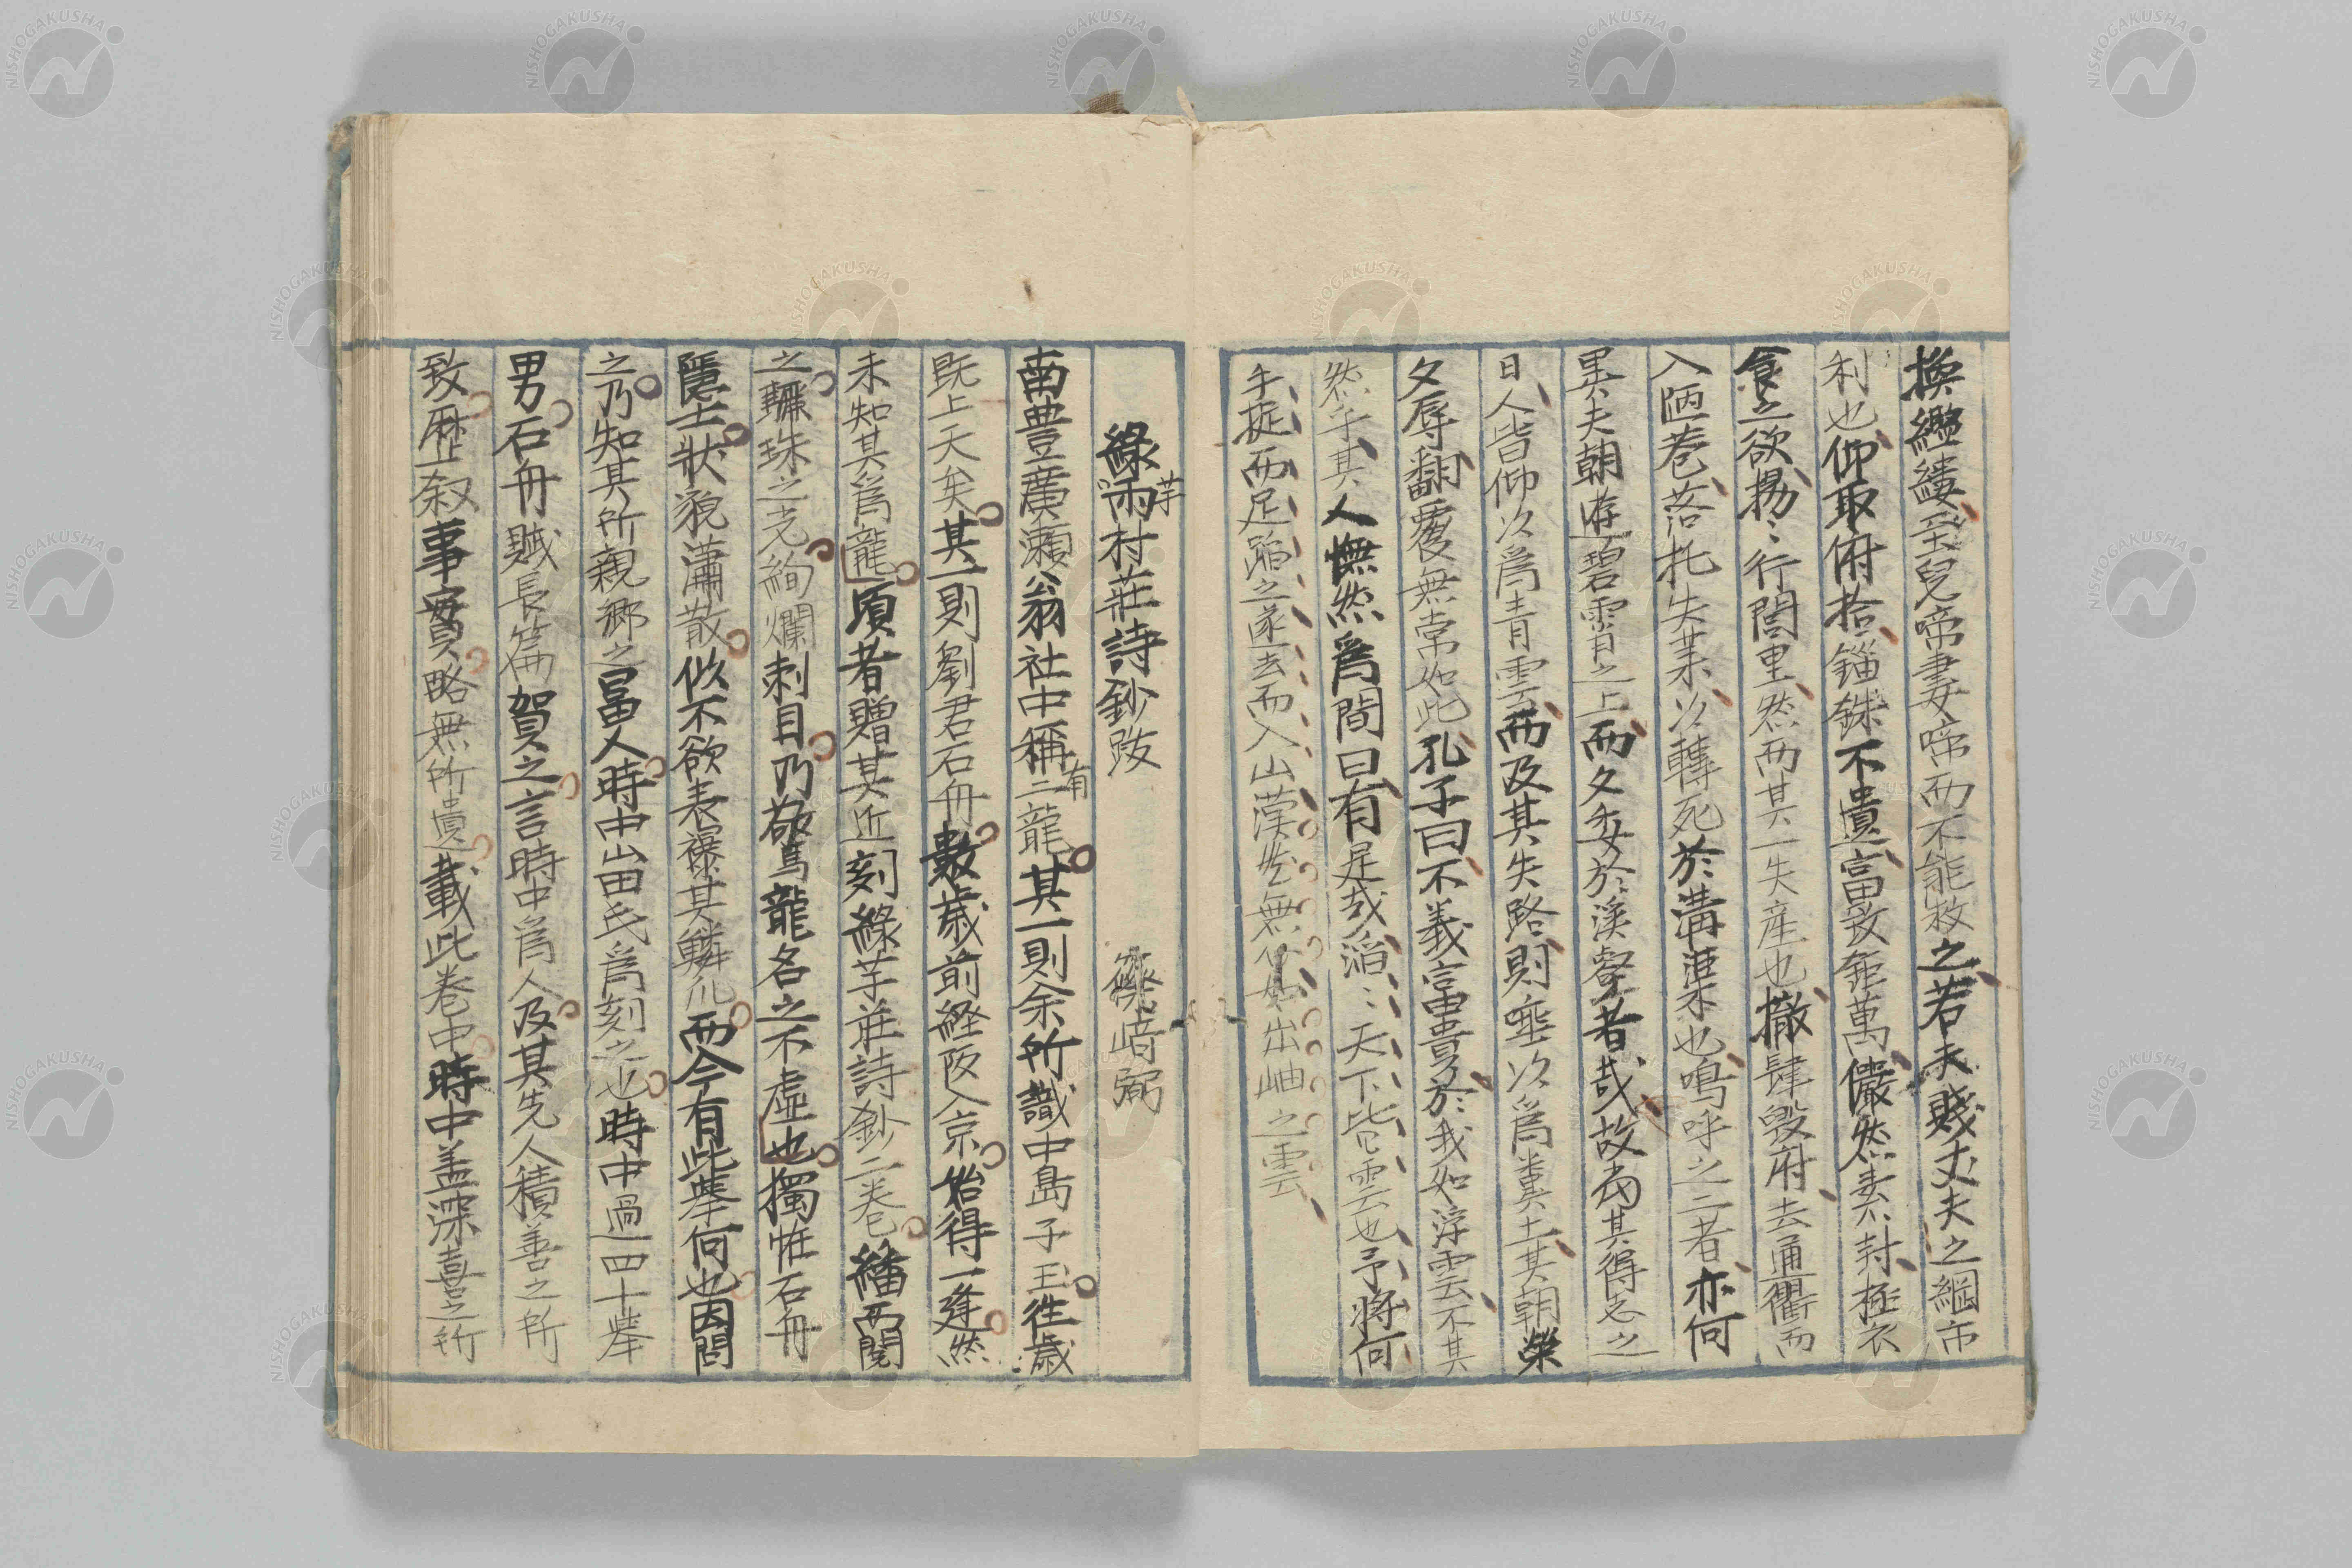 換纚縷至兒啼妻啼而不能救之若夫賤丈夫之綱市
利也仰取俯拾錙銖不遺富致鉅萬儼然素封極衣
食之欲揚〻行閭里然而其一失産也撤肆毀府去通衢而
入陋巷落托失業以轉死於溝渠也鳴呼之二者亦何
異夫朝遊碧霄之上而夕委於溪壑者哉故當其得志之
日人皆仰以爲青雲而及其失路則唾以爲糞土其朝榮
夕辱翻覆無常如此孔子曰不義富貴於我如浮雲不其
然乎其人憮然爲間曰有是哉滔〻天下皆雲也予將何
手捉而足蹈之遂去而入山漠然無心如出岫之雲
綠雨村莊詩鈔跋 篠﨑弼
芋
南豊廣瀨翁社中稱二龍其一則余所識中島子玉往歲
有
既上天矣其一則劉君石舟數歲前経阪入京始得一逢然
未知其爲龍頃者贈其近刻綠芋莊詩鈔二卷繙而閲
之驪珠之光絢爛刺目乃驚龍名之不虛也獨恠石舟
隱士狀貌瀟散似不欲表襮其鱗爪而今有此舉何也因問
之乃知其所親鄉之冨人時中山田氏爲刻之也時中過四十舉
男石舟賊長篇賀之言時中爲人及其先人積善之所
致歴叙事實略無所遺載此卷中時中盖深喜之所
NISHOGAKUSHA